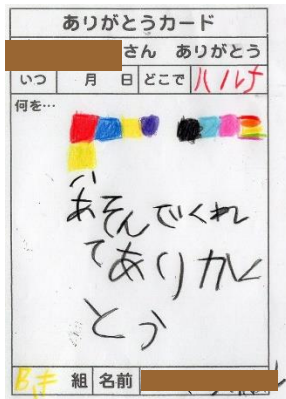 ありがとうカード
さん ありがとう
いつ 月 日 どこで ハルナ
何を…
あそんでくれ
てありがと
とう
組 名前